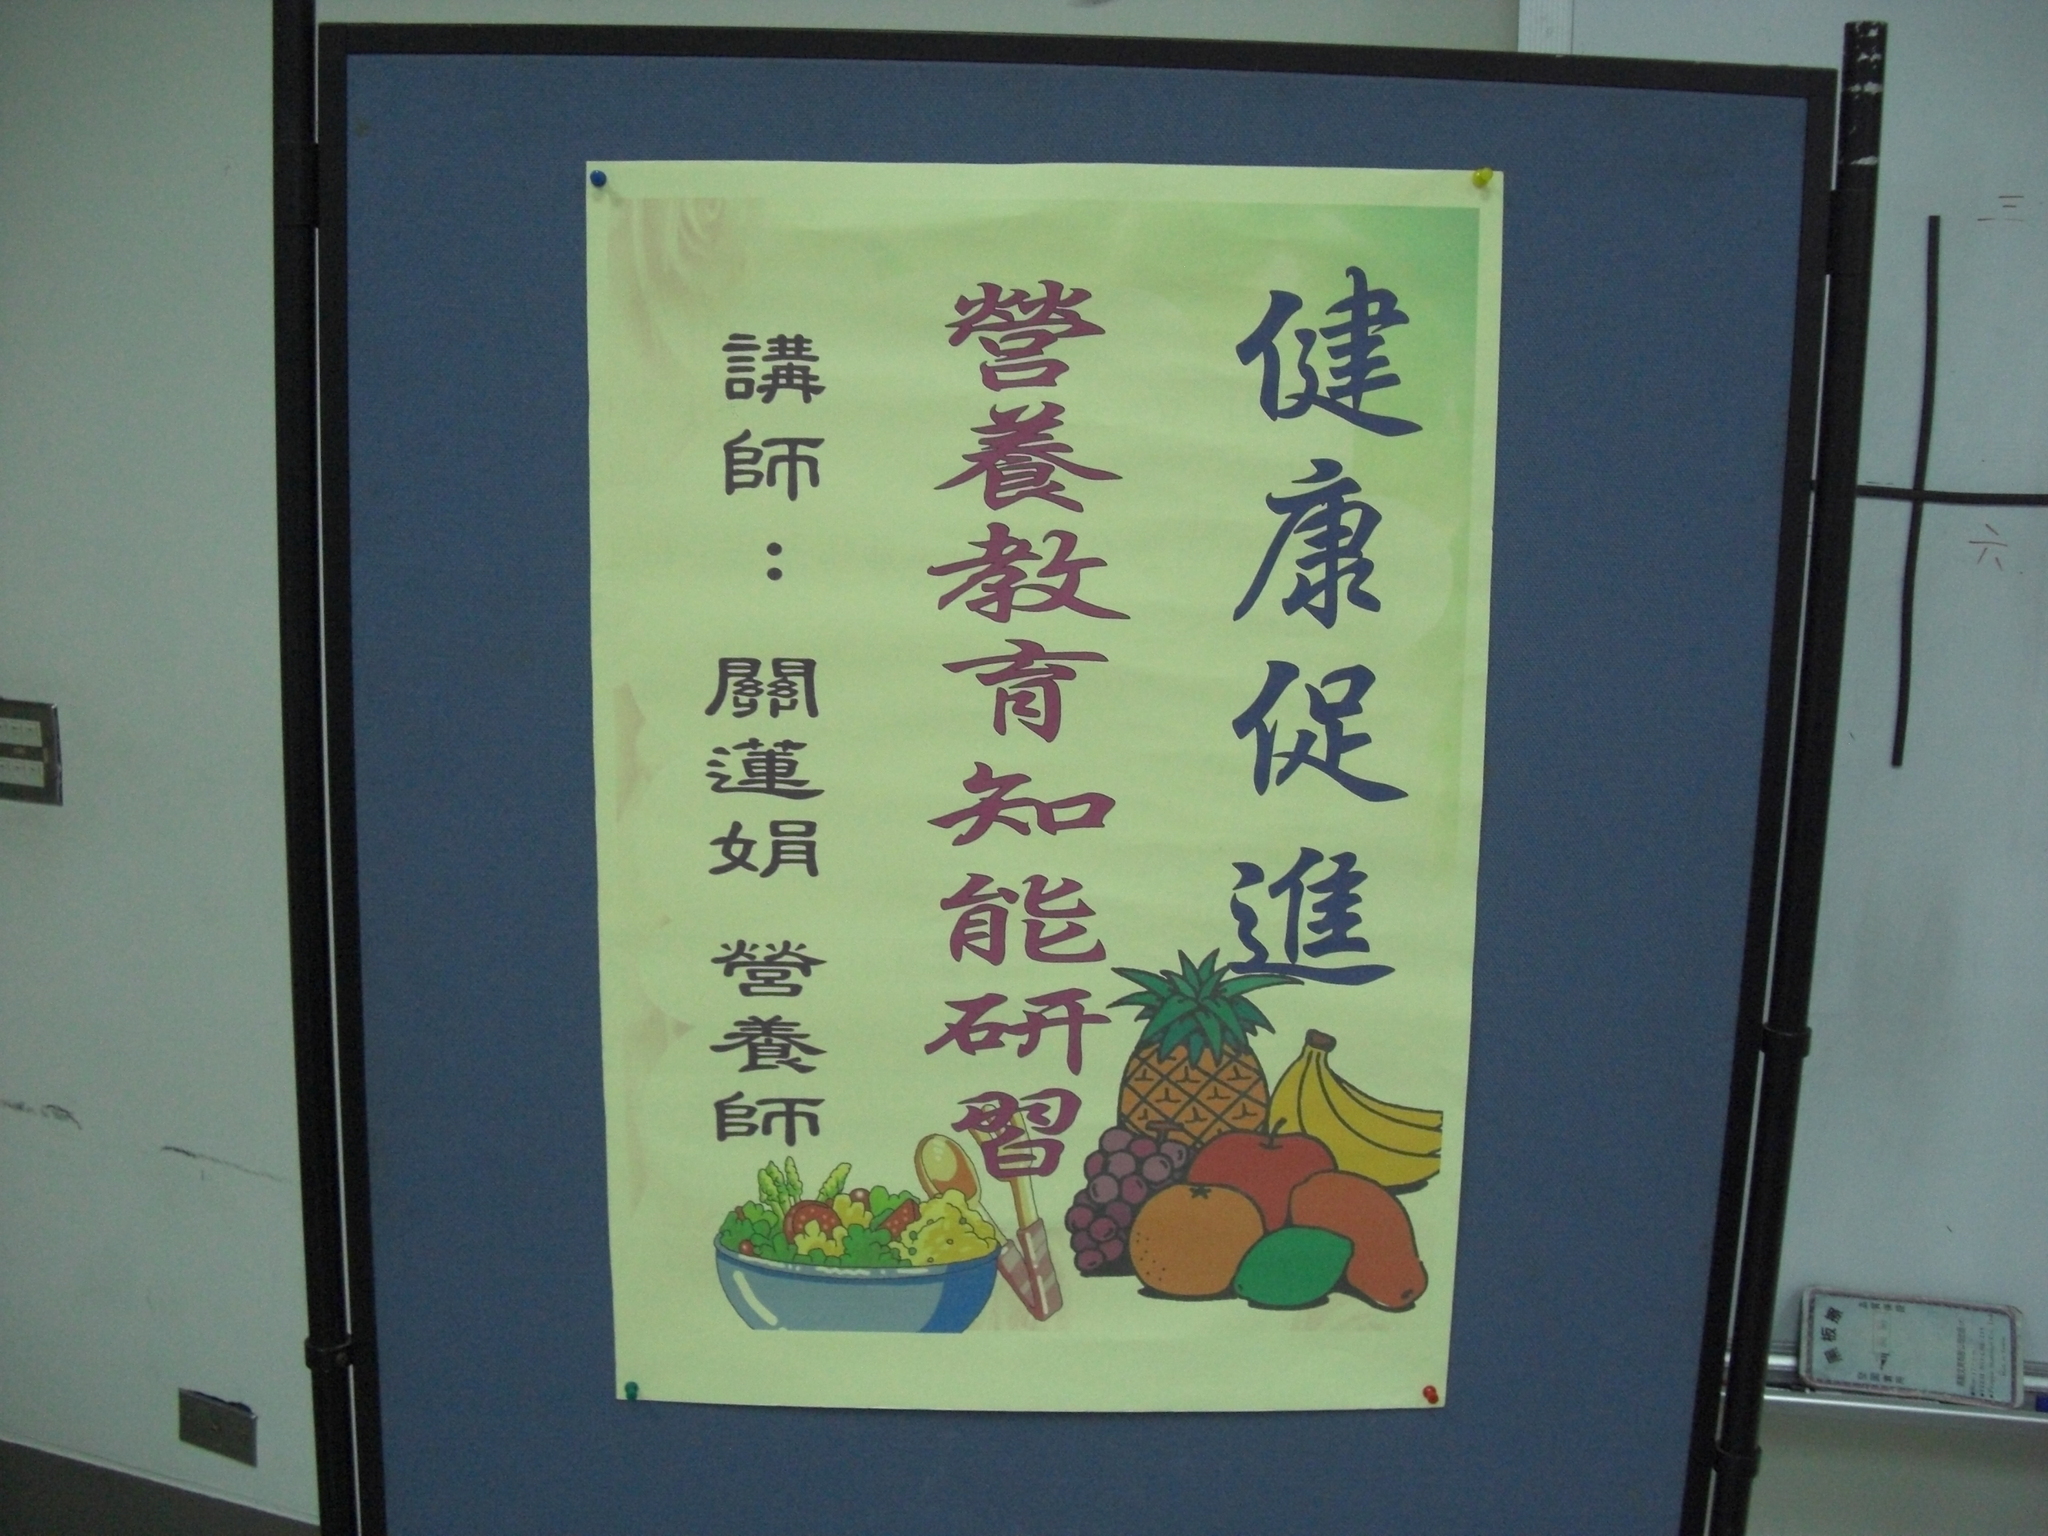 健康促進
營養教育知能研習
講師：關蓮娟 營養師
三
六
黑板擦